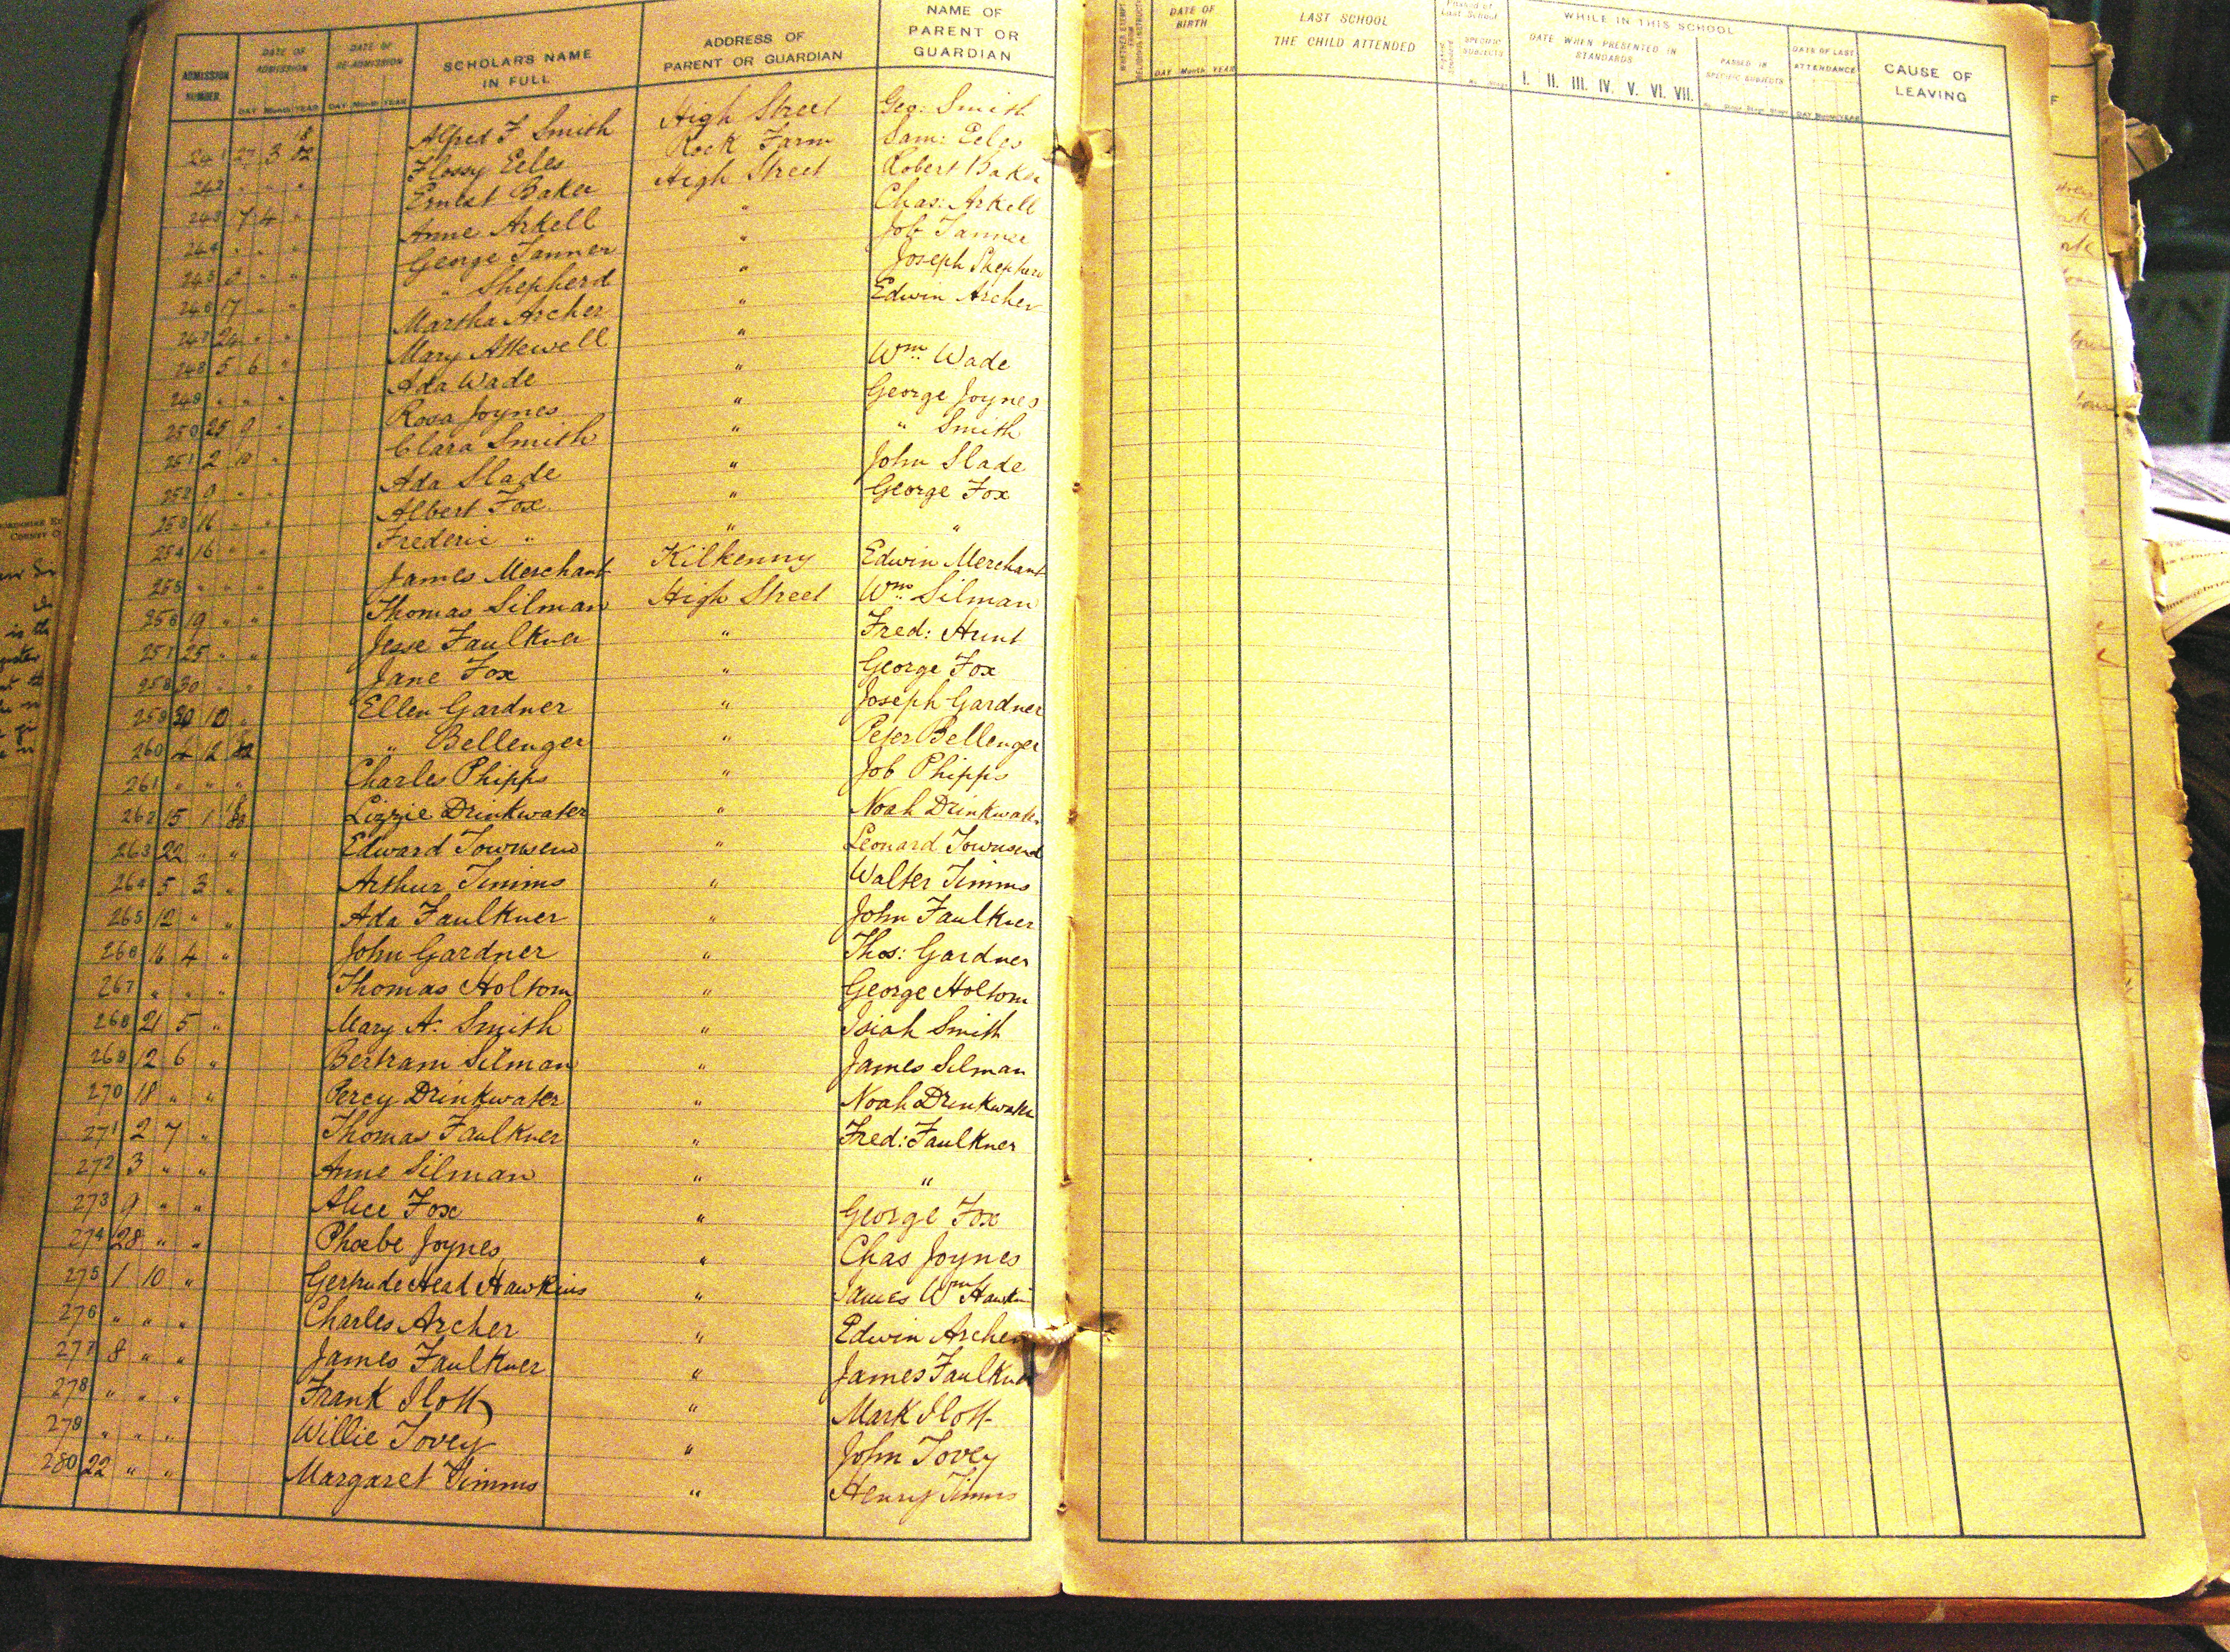 ADMISSION NUMBER
DATE OF ADMISSION
DAY Month YEAR
DATE OF RE-ADMISSION
DAY Month YEAR
SCHOLAR'S NAME IN FULL
ADDRESS OF PARENT OR GUARDIAN
NAME OF PARENT OR GUARDIAN
241 27 3 18 82 Alfred F Smith High Street Geo: Smith
242 " " " Flossy Eeles Rock Farm Sam: Eeles
243 7 4 " Ernest Baker High Street Robert Baker
244 " " " Anne Arkell " Chas: Arkell
245 8 " " George Tanner " Job Tanner
246 17 " " " Shepherd " Joseph Shepherd
247 24 " " Martha Archer " Edwin Archer
248 5 6 " Mary Attewell "
249 " " " Ada Wade " Wm Wade
250 25 9 " Rosa Joynes " George Joynes
251 2 10 " Clara Smith " " Smith
252 9 " " Ada Slade " John Slade
253 16 " " Albert Fox " George Fox
254 16 " " Frederic " " "
255 " " " James Merchant Kilkenny Edwin Merchant
256 19 " " Thomas Silman High Street Wm Silman
257 25 " " Jesse Faulkner " Fred: Hunt
258 30 " " Jane Fox " George Fox
259 30 10 " Ellen Gardner " Joseph Gardner
260 4 12 82 " Bellenger " Peter Bellenger
261 " " " Charles Phipps " Job Phipps
262 15 1 Lizzie Drinkwater " Noah Drinkwater
263 22 " " Edward Townsend " Leonard Townsend
264 5 3 " Arthur Timms " Walter Timms
265 12 " " Ada Faulkner " John Faulkner
266 16 4 " John Gardner " Thos: Gardner
267 " " " Thomas Holtom " George Holtom
268 21 5 " Mary A. Smith " Isiah Smith
269 12 6 " Bertram Silman " James Silman
270 18 " " Percy Drinkwater " Noah Drinkwater
271 2 7 " Thomas Faulkner " Fred: Faulkner
272 3 " " Anne Silman " "
273 9 " " Alice Fox " George Fox
274 28 " " Phoebe Joynes " Chas Joynes
275 1 10 " Gertrude Head Hawkins " James Wm Hawkins
276 " " " Charles Archer " Edwin Archer
277 8 " " James Faulkner " James Faulkner
278 " " " Frank Ilott " Mark Ilott
279 " " " Willie Tovey " John Tovey
280 22 " " Margaret Timms " Henry Timms
DATE OF BIRTH
DAY Month YEAR
LAST SCHOOL THE CHILD ATTENDED
SPECIFIC SUBJECTS
WHILE IN THIS SCHOOL
DATE WHEN PRESENTED IN STANDARDS
I. II. III. IV. V. VI. VII.
PASSED IN SPECIFIC SUBJECTS
DATE OF LAST ATTENDANCE
DAY Month YEAR
CAUSE OF LEAVING